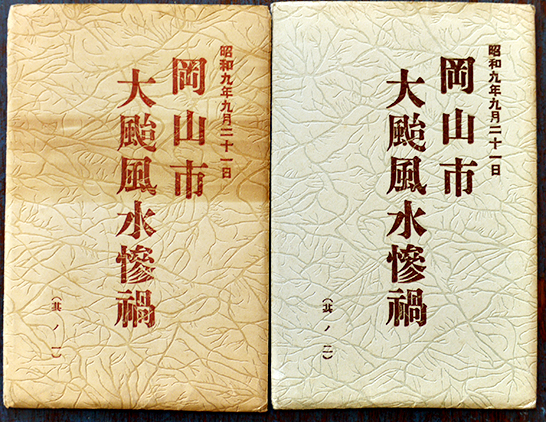 昭和九年九月二十一日
岡山市
大颱風水惨禍
(其ノ一)
昭和九年九月二十一日
岡山市
大颱風水惨禍
(其ノ二)